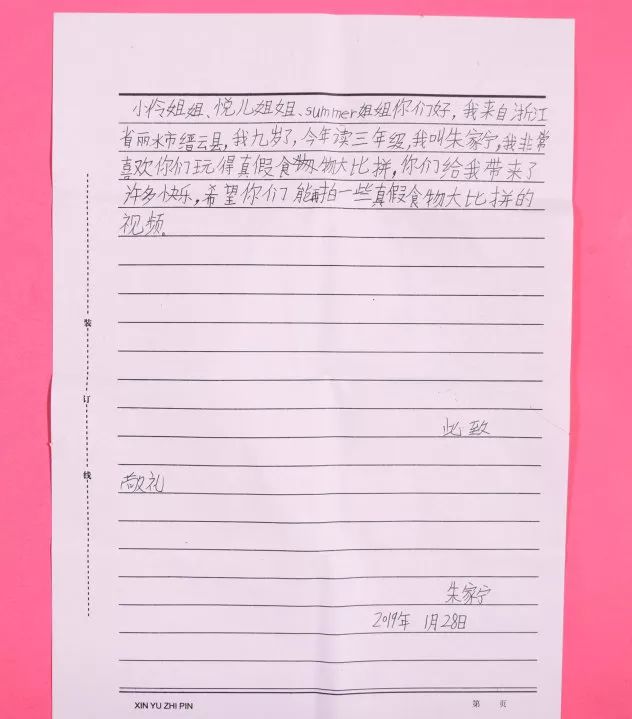 小伶姐姐、悦儿姐姐、summer姐姐你们好，我来自浙江
省丽水市缙云县，我九岁了，今年读三年级，我叫朱家宁，我非常
喜欢你们玩得真假食物大比拼，你们给我带来了
许多快乐，希望你们能再拍一些真假食物大比拼的
视频。
装
订
线
此致
敬礼
朱家宁
2019年 1月28日
XIN YU ZHI PIN
第 页